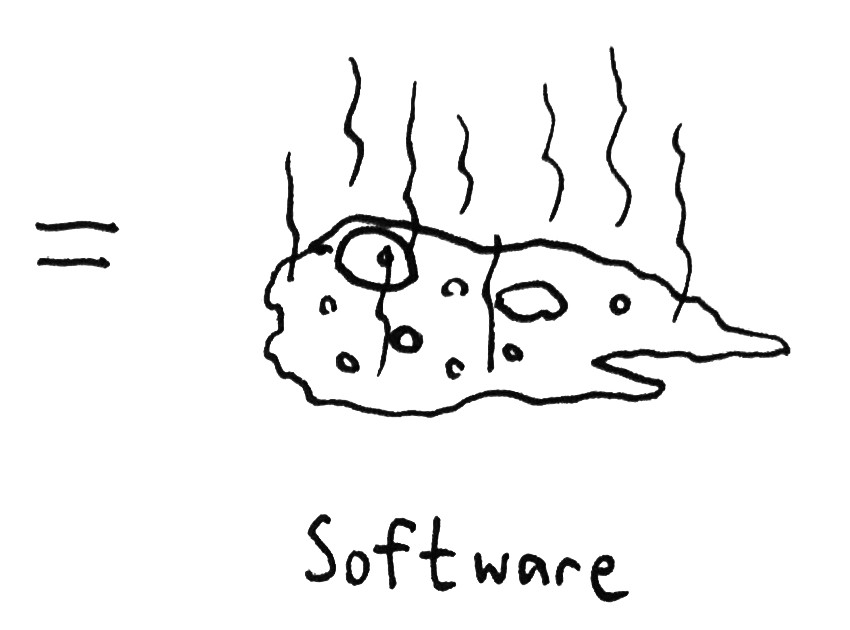 =
Software